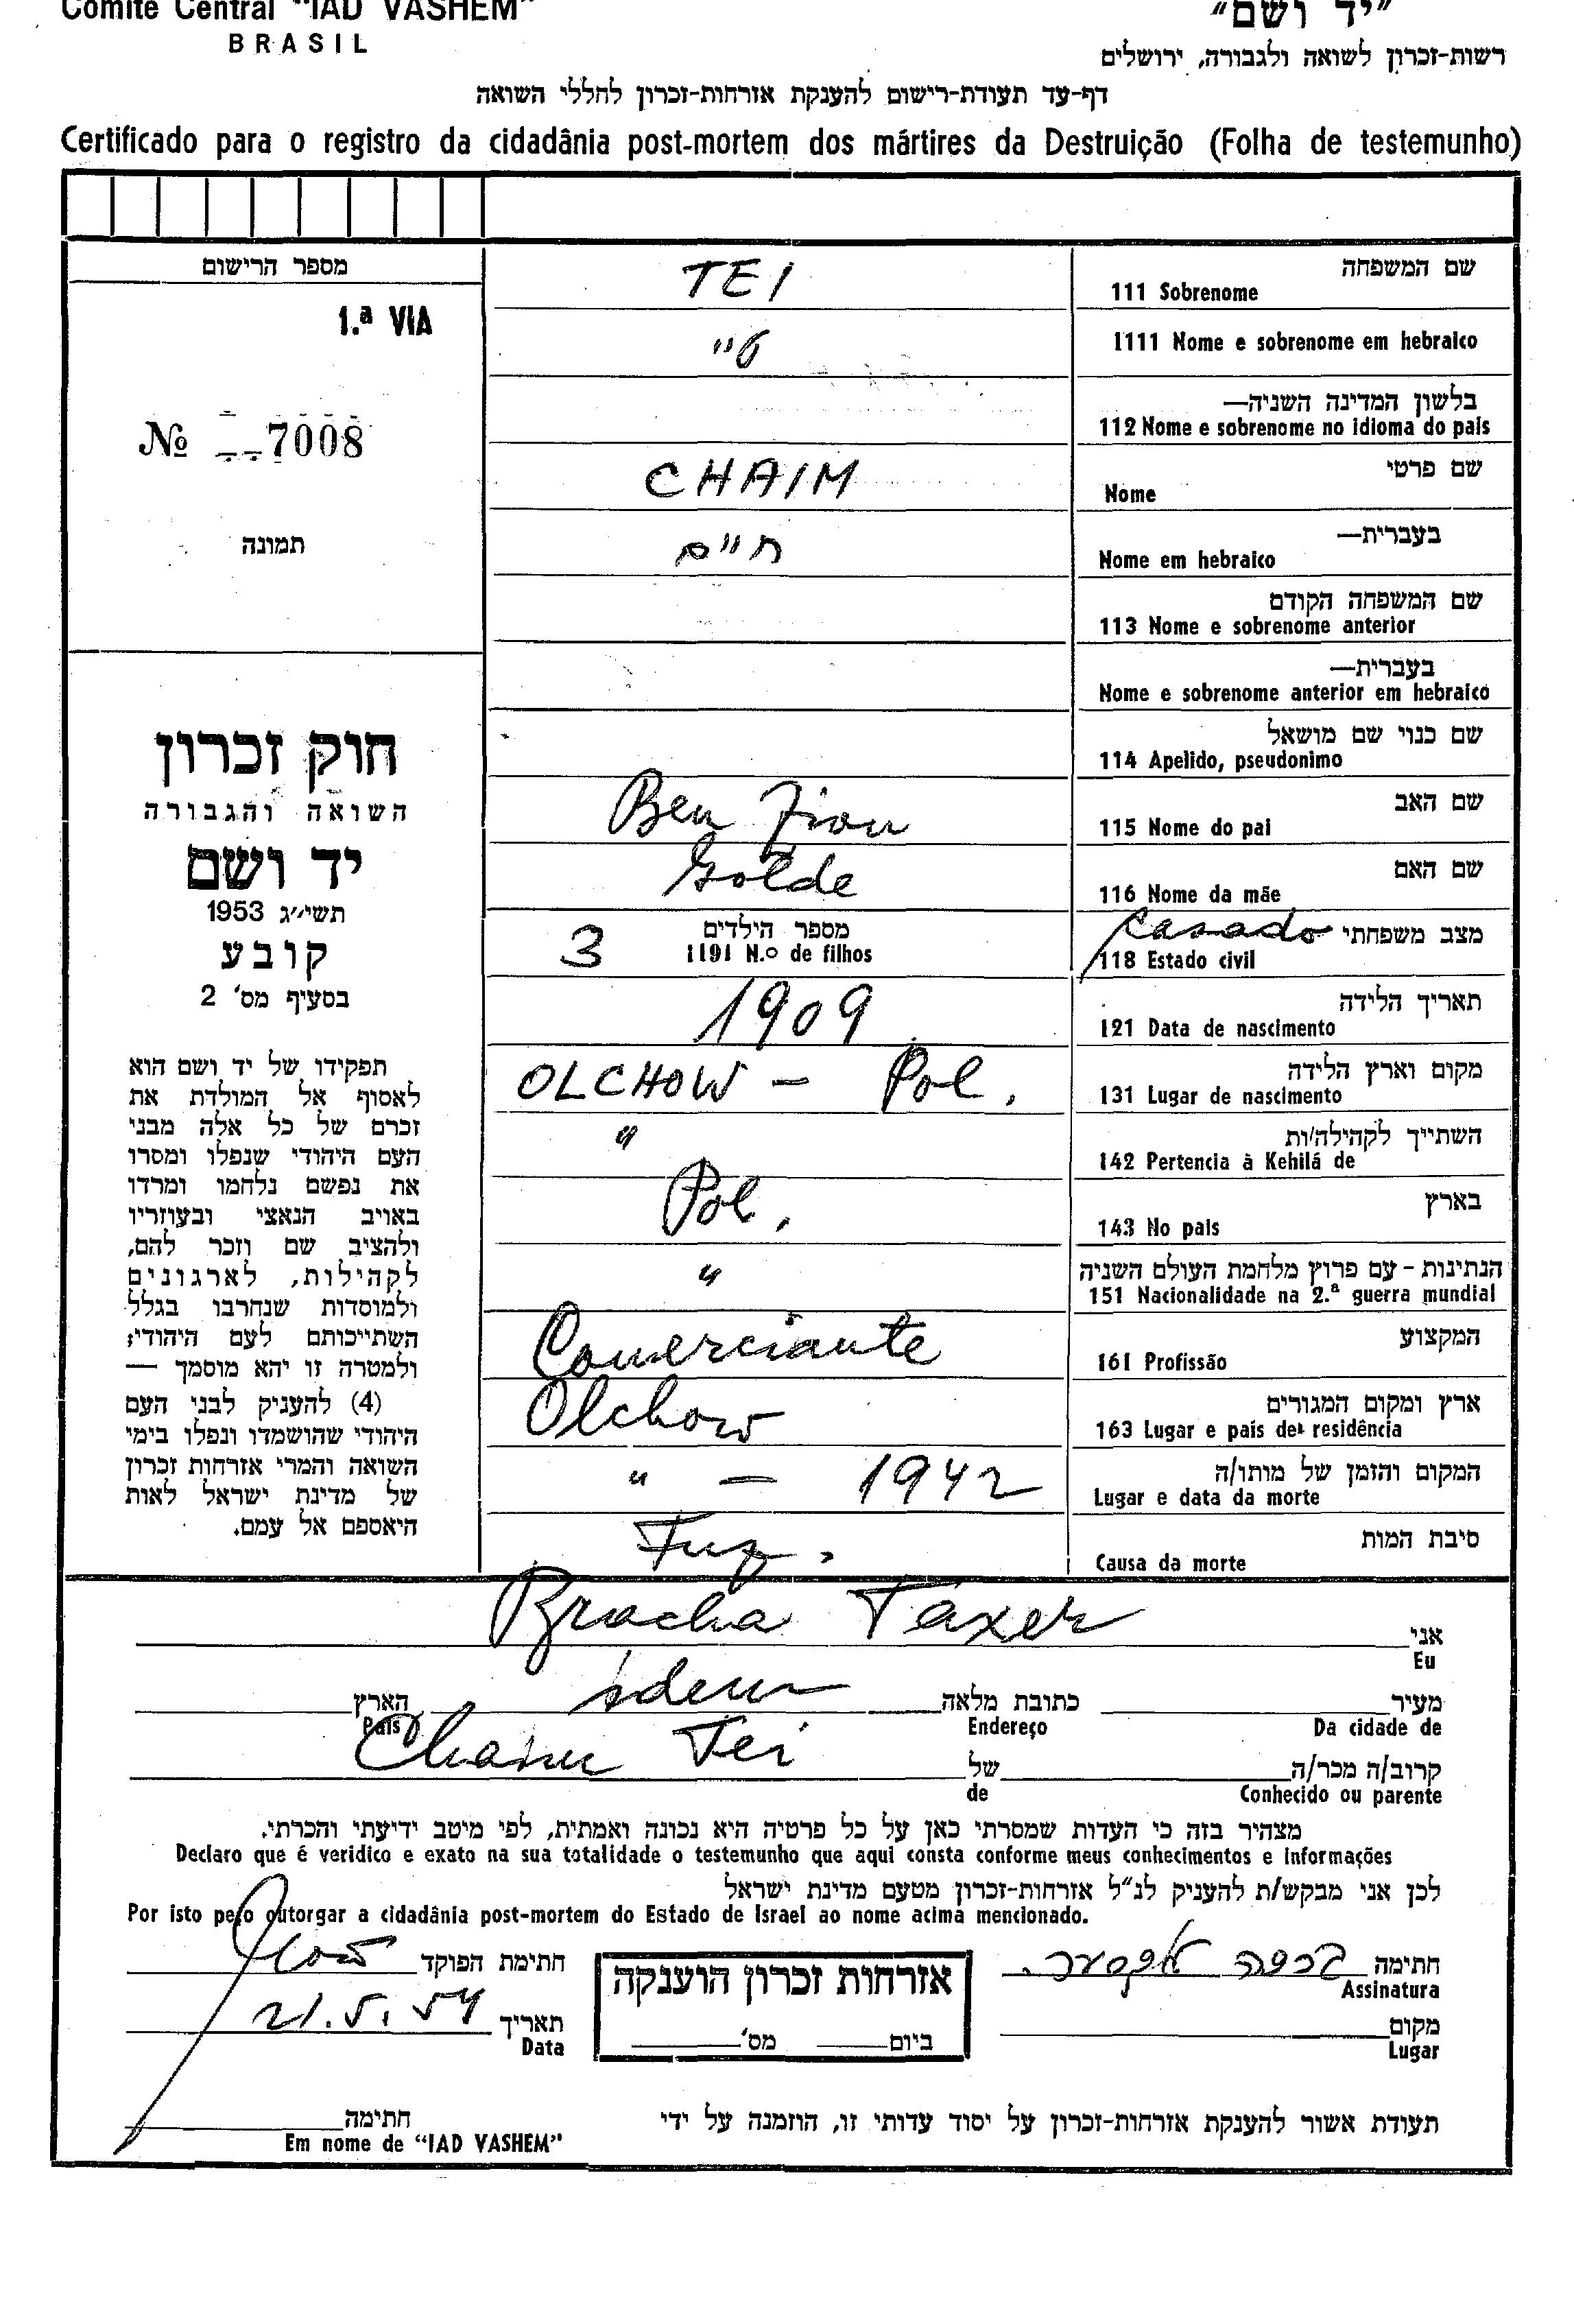 Comité Central "IAD VASHEM"
BRASIL
"יד ושם"
רשות-זכרון לשואה ולגבורה, ירושלים
דף-עד תעודת-רישום להענקת אזרחות-זכרון לחללי השואה
Certificado para o registro da cidadânia post-mortem dos mártires da Destruição (Folha de testemunho)
מספר הרישום
1.ª VIA
№ 7008
תמונה
חוק זכרון
השואה והגבורה
יד ושם
תשי״ג 1953
קובע
בסעיף מס' 2
תפקידו של יד ושם הוא
לאסוף אל המולדת את
זכרם של כל אלה מבני
העם היהודי שנפלו ומסרו
את נפשם נלחמו ומרדו
באויב הנאצי ובעוזריו
ולהציב שם וזכר להם,
לקהילות, לארגונים
ולמוסדות שנחרבו בגלל
השתייכותם לעם היהודי;
ולמטרה זו יהא מוסמך —
(4) להעניק לבני העם
היהודי שהושמדו ונפלו בימי
השואה והמרי אזרחות זכרון
של מדינת ישראל לאות
היאספם אל עמם.
שם המשפחה
111 Sobrenome TEI
1111 Nome e sobrenome em hebraico טיי
בלשון המדינה השניה—
112 Nome e sobrenome no idioma do pais
שם פרטי
Nome CHAIM
בעברית—
Nome em hebraico חיים
שם המשפחה הקודם
113 Nome e sobrenome anterior
בעברית—
Nome e sobrenome anterior em hebraico
שם כנוי שם מושאל
114 Apelido, pseudonimo
שם האב
115 Nome do pai Ben Zion
שם האם
116 Nome da mãe Golde
מצב משפחתי casado
118 Estado civil
מספר הילדים
1191 N.º de filhos 3
תאריך הלידה
121 Data de nascimento 1909
מקום וארץ הלידה
131 Lugar de nascimento OLCHOW - Pol.
השתייך לקהילה/ות
142 Pertencia à Kehilá de "
בארץ
143 No pais Pol.
הנתינות - עם פרוץ מלחמת העולם השניה
151 Nacionalidade na 2.ª guerra mundial "
המקצוע
161 Profissão Comerciante
ארץ ומקום המגורים
163 Lugar e pais de residência Olchow
המקום והזמן של מותו/ה
Lugar e data da morte " - 1942
סיבת המות
Causa da morte Fuz.
אני Bracha Taxer
Eu
מעיר כתובת מלאה idem הארץ
Da cidade de Endereço Pais
קרוב/ה מכר/ה של Chaim Tei
Conhecido ou parente de
מצהיר בזה כי העדות שמסרתי כאן על כל פרטיה היא נכונה ואמתית, לפי מיטב ידיעתי והכרתי.
Declaro que é veridico e exato na sua totalidade o testemunho que aqui consta conforme meus conhecimentos e informações
לכן אני מבקש/ת להעניק לנ"ל אזרחות-זכרון מטעם מדינת ישראל
Por isto peço outorgar a cidadânia post-mortem do Estado de Israel ao nome acima mencionado.
חתימה
Assinatura
מקום
Lugar
אזרחות זכרון הוענקה
ביום מס'
חתימת הפוקד
תאריך 21.5.54
Data
תעודת אשור להענקת אזרחות-זכרון על יסוד עדותי זו, הוזמנה על ידי
חתימה
Em nome de "IAD VASHEM"